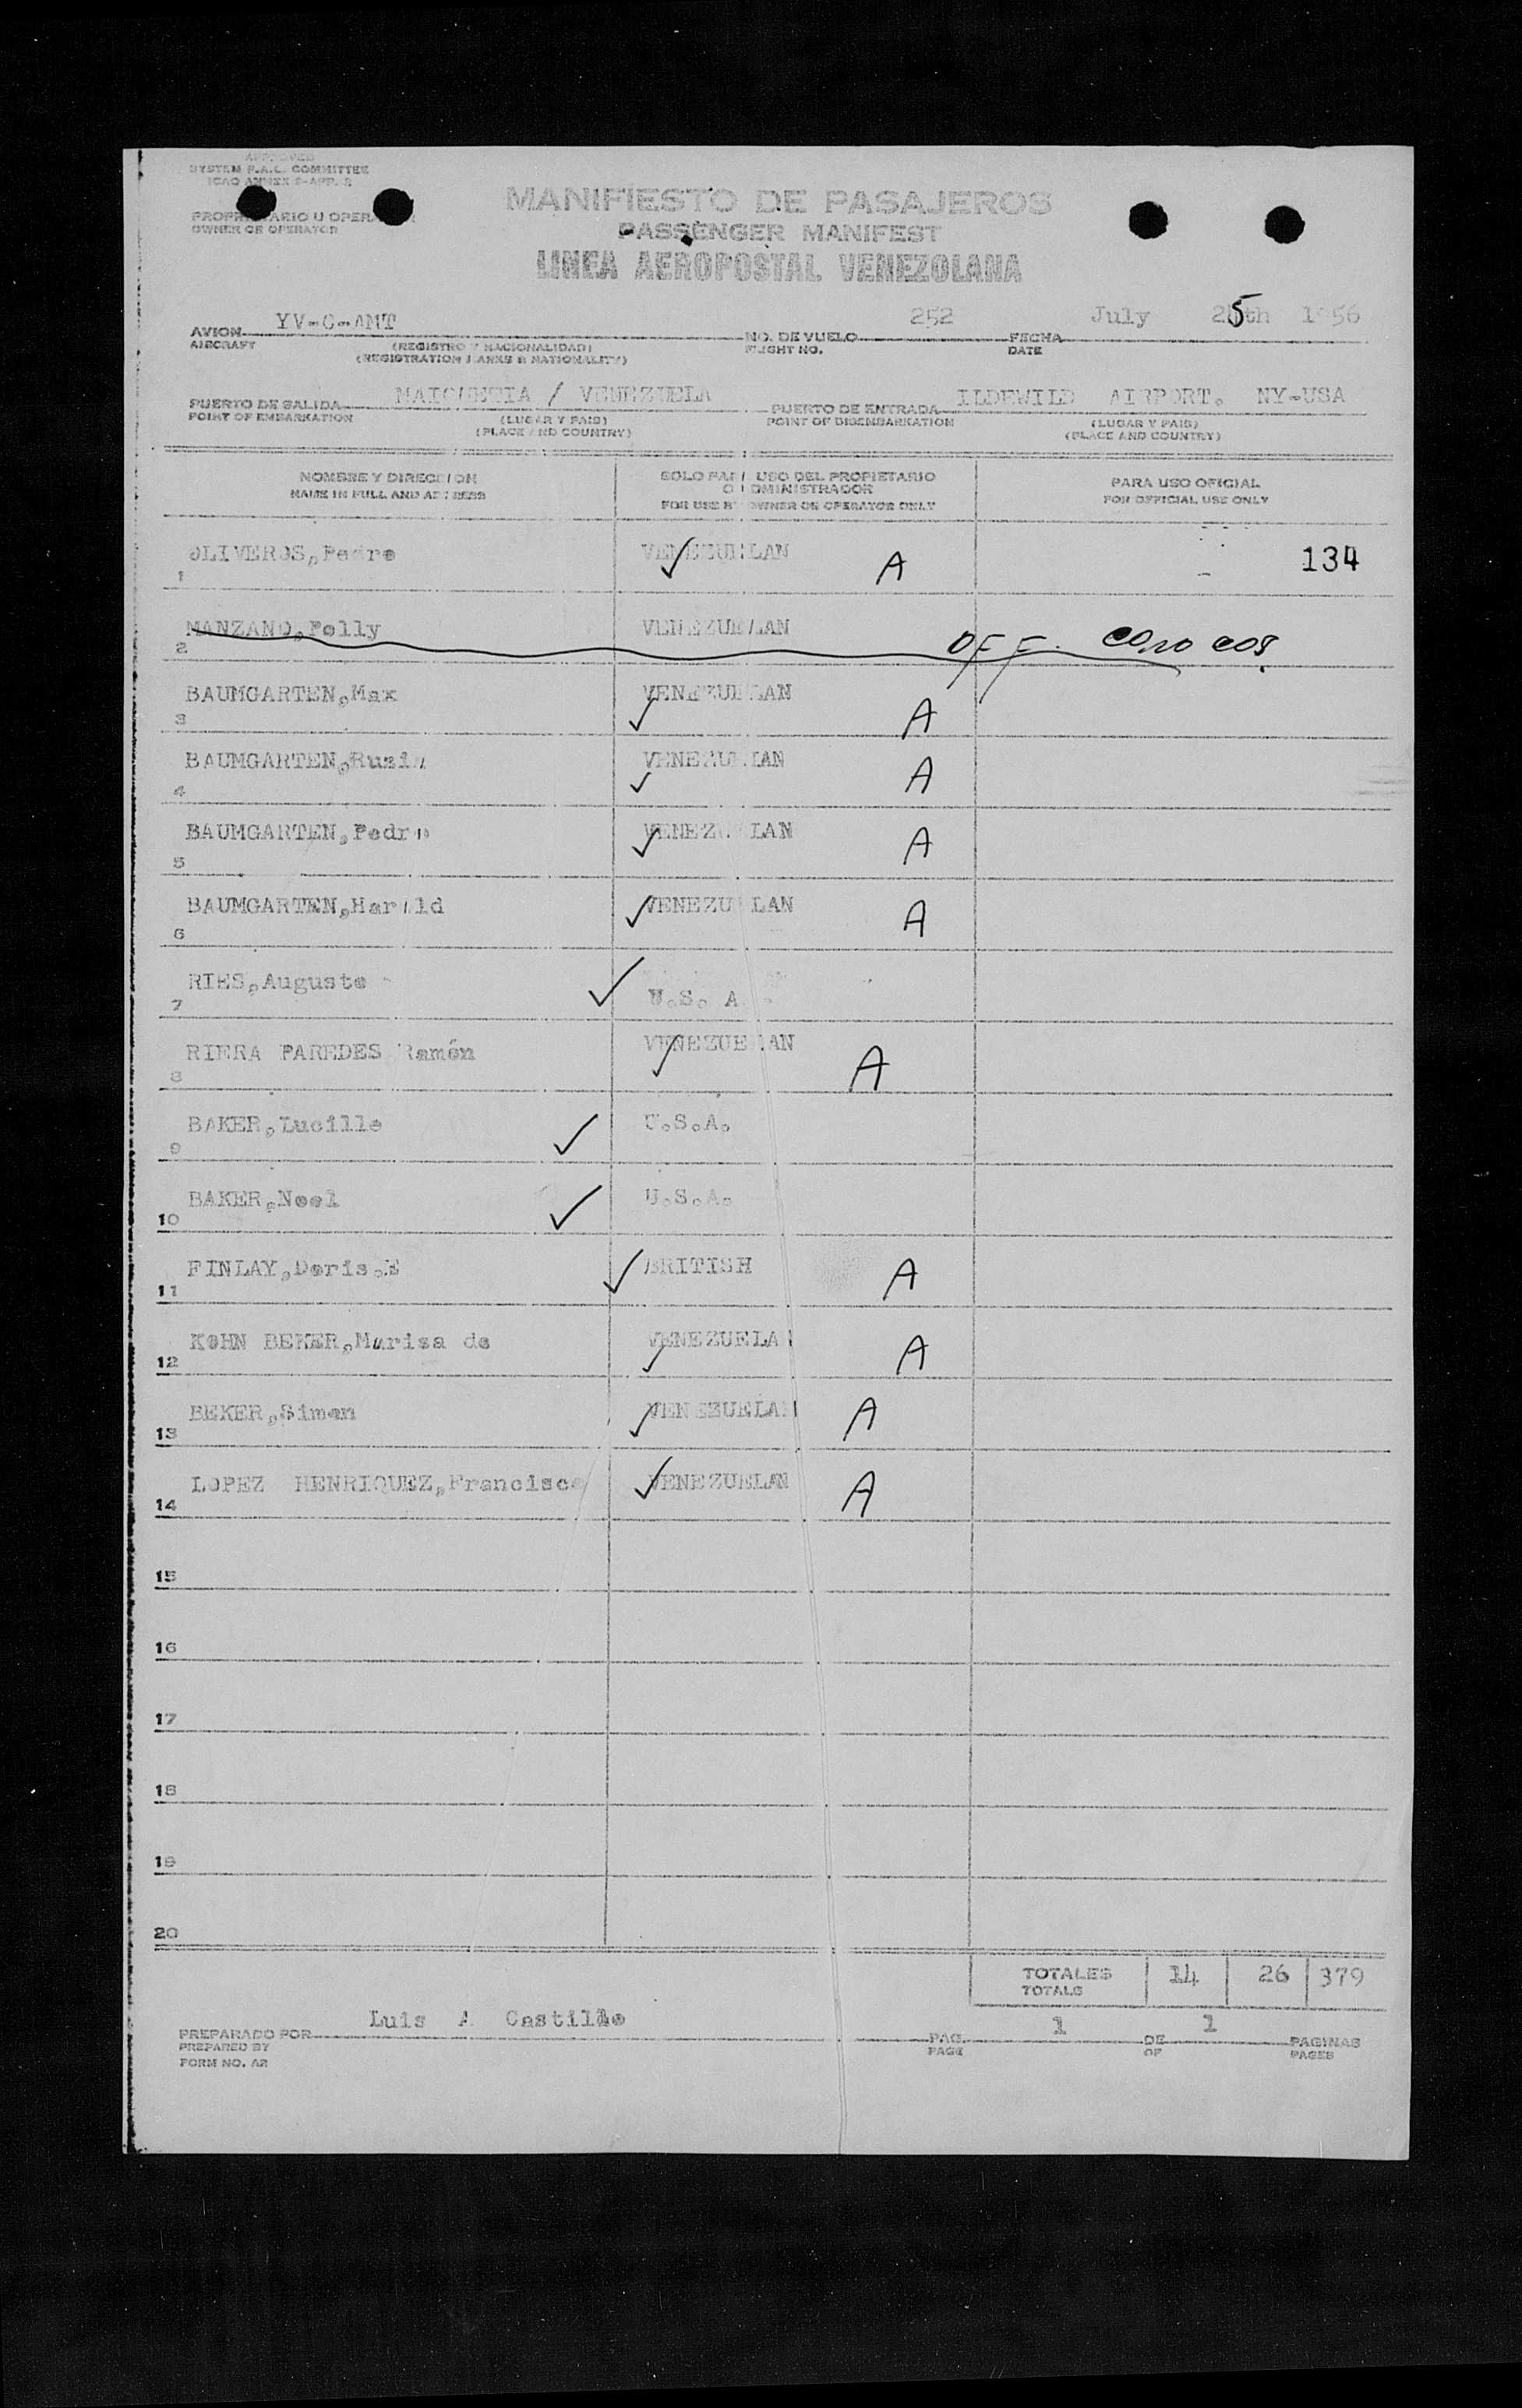 APPROVED
SYSTEM F.A.L. COMMITTEE
ICAO ANNEX 9-APP. 2
OWNER OR OPERATOR
MANIFIESTO DE PASAJEROS
PASSENGER MANIFEST
LINEA AEROPOSTAL VENEZOLANA
AVION YV-C-AMT NO. DE VUELO 252 FECHA July 25th 1956
AIRCRAFT (REGISTRO Y NACIONALIDAD) FLIGHT NO. DATE
(REGISTRATION MARKS & NATIONALITY)
PUERTO DE SALIDA MAIQUETIA / VENEZUELA PUERTO DE ENTRADA ILDEWILD AIRPORT. NY-USA
POINT OF EMBARKATION (LUGAR Y PAIS) POINT OF DISEMBARKATION (LUGAR Y PAIS)
(PLACE AND COUNTRY) (PLACE AND COUNTRY)
NOMBRE Y DIRECCION SOLO PARA USO DEL PROPIETARIO O ADMINISTRADOR PARA USO OFICIAL
NAME IN FULL AND ADDRESS FOR USE BY OWNER OR OPERATOR ONLY FOR OFFICIAL USE ONLY
1 OLIVEROS,Pedro VENEZUELAN A 134
2 MANZANO,Polly VENEZUELAN OFF.
3 BAUMGARTEN,Max VENEZUELAN A
4 BAUMGARTEN, VENEZUELAN A
5 BAUMGARTEN,Pedro VENEZUELAN A
6 BAUMGARTEN,Harald VENEZUELAN A
7 RIES,Auguste U.S. A
8 RIERA PAREDES Ramón VENEZUELAN A
9 BAKER,Lucille U.S.A.
10 BAKER,Noel U.S.A.
11 FINLAY,Doris.E BRITISH A
12 KOHN BEKER,Marisa de VENEZUELAN A
13 BEKER,Simon VENEZUELAN A
14 LOPEZ HENRIQUEZ,Francisco VENEZUELAN A
15
16
17
18
19
20
TOTALES 14 26 379
TOTALS
PREPARADO POR Luis A Castillo PAG. 1 DE 1 PAGINAS
PREPARED BY PAGE OF PAGES
FORM NO. A2